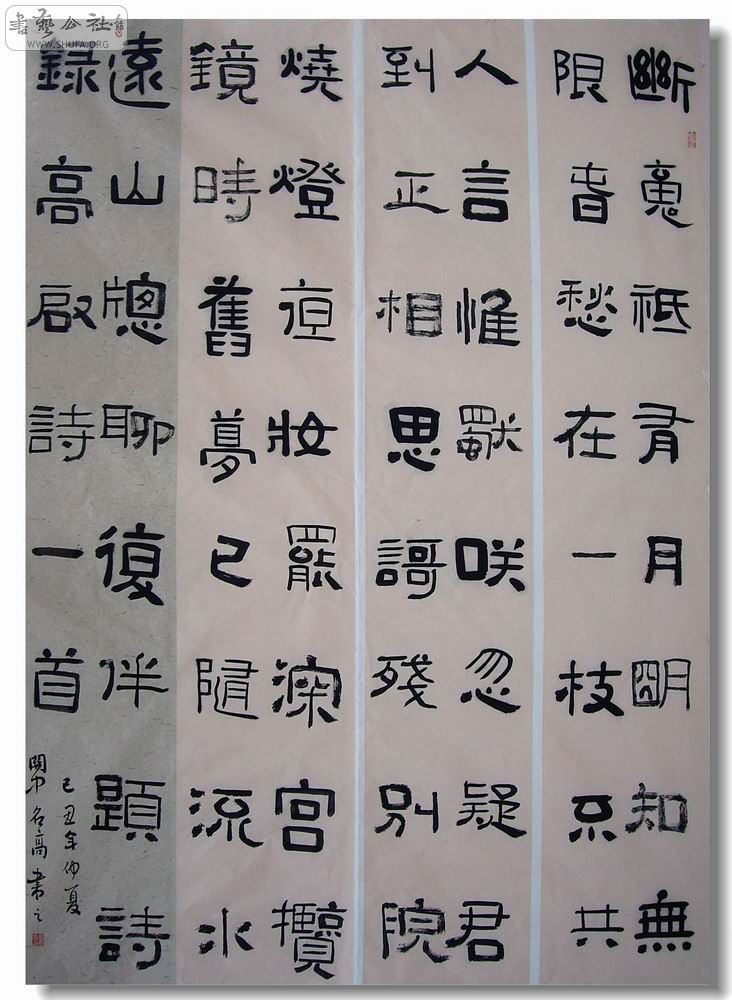 斷䰟祗有月朙知無
限旾愁在一枝不共
人言惟獸咲忽疑君
到正相思謌殘別院
燒燈夜妝罷深宮攬
鏡時舊夢已隨流水
遠山牕聊復伴題詩
錄高啟詩一首
己丑年仲夏
中名高書之
書藝公社
WWW.SHUFA.ORG